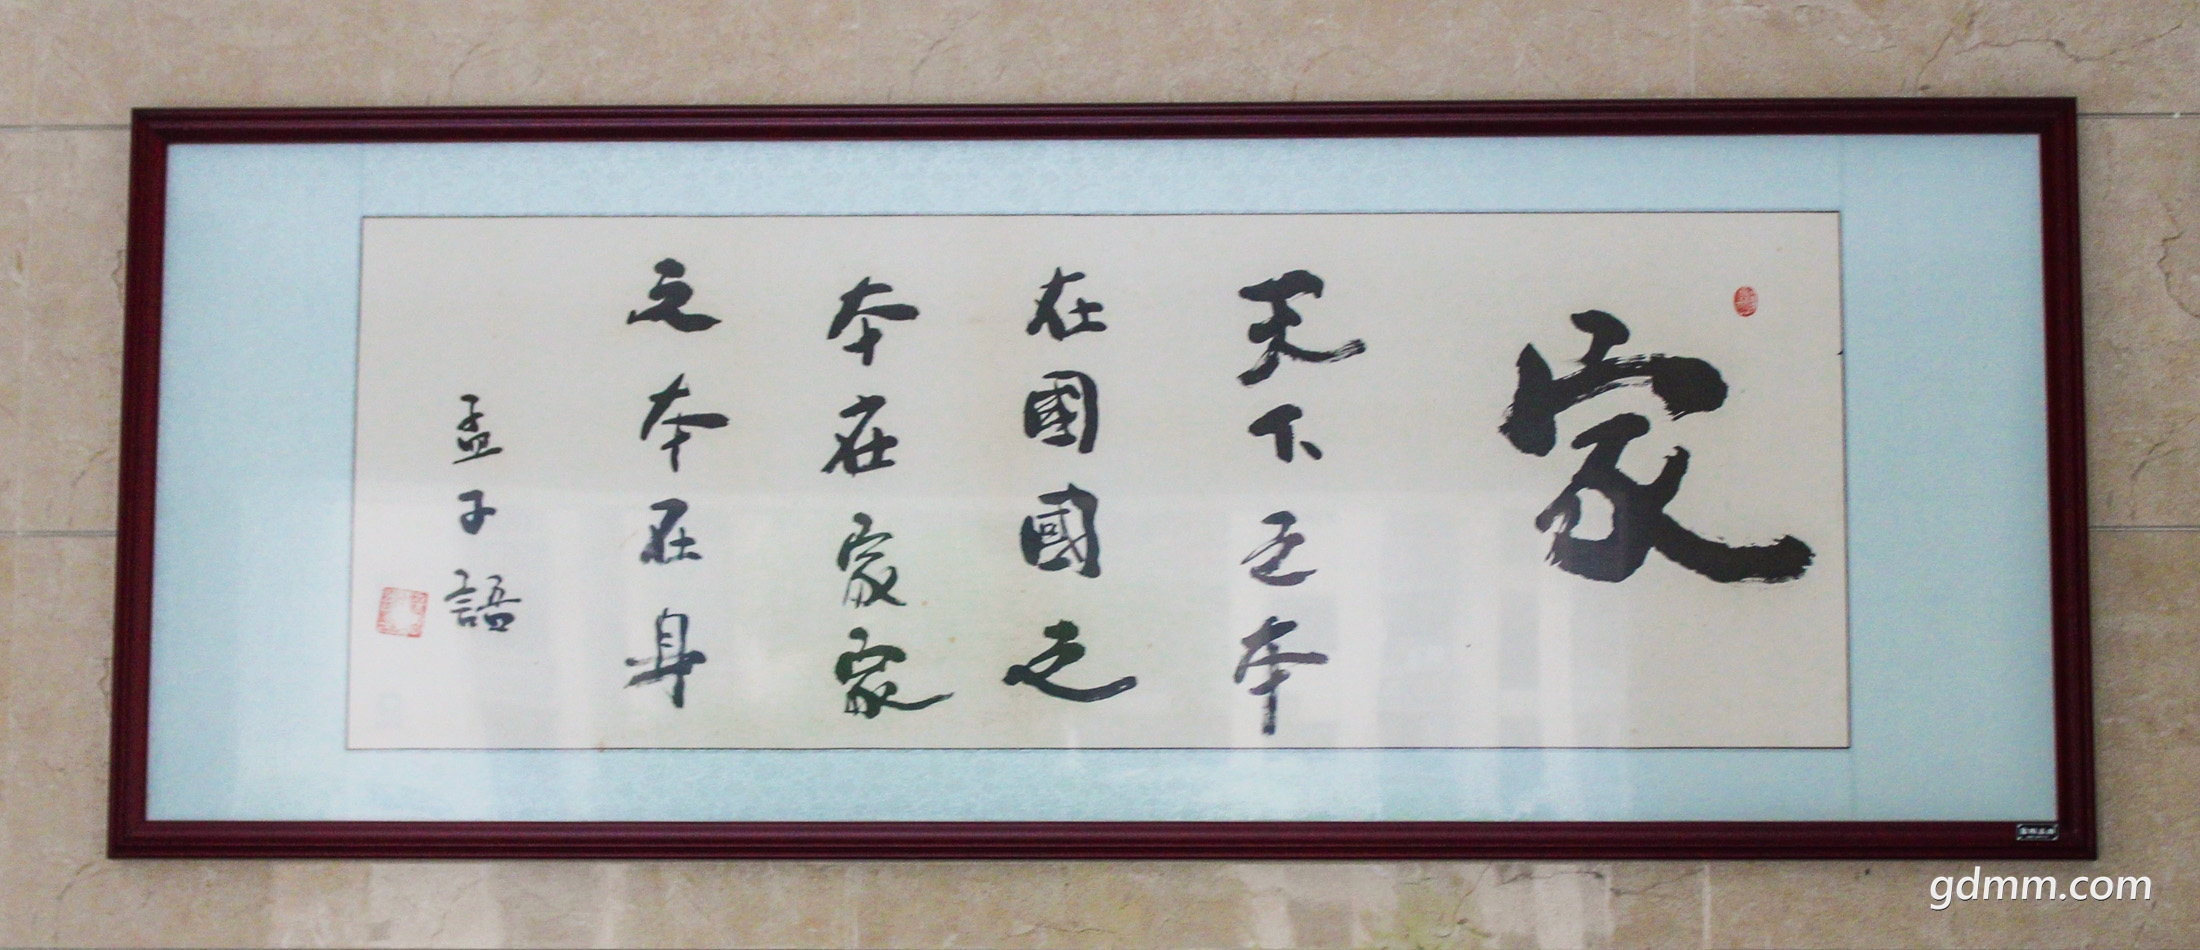 家
天下之本
在國國之
本在家家
之本在身
孟子語
gdmm.com